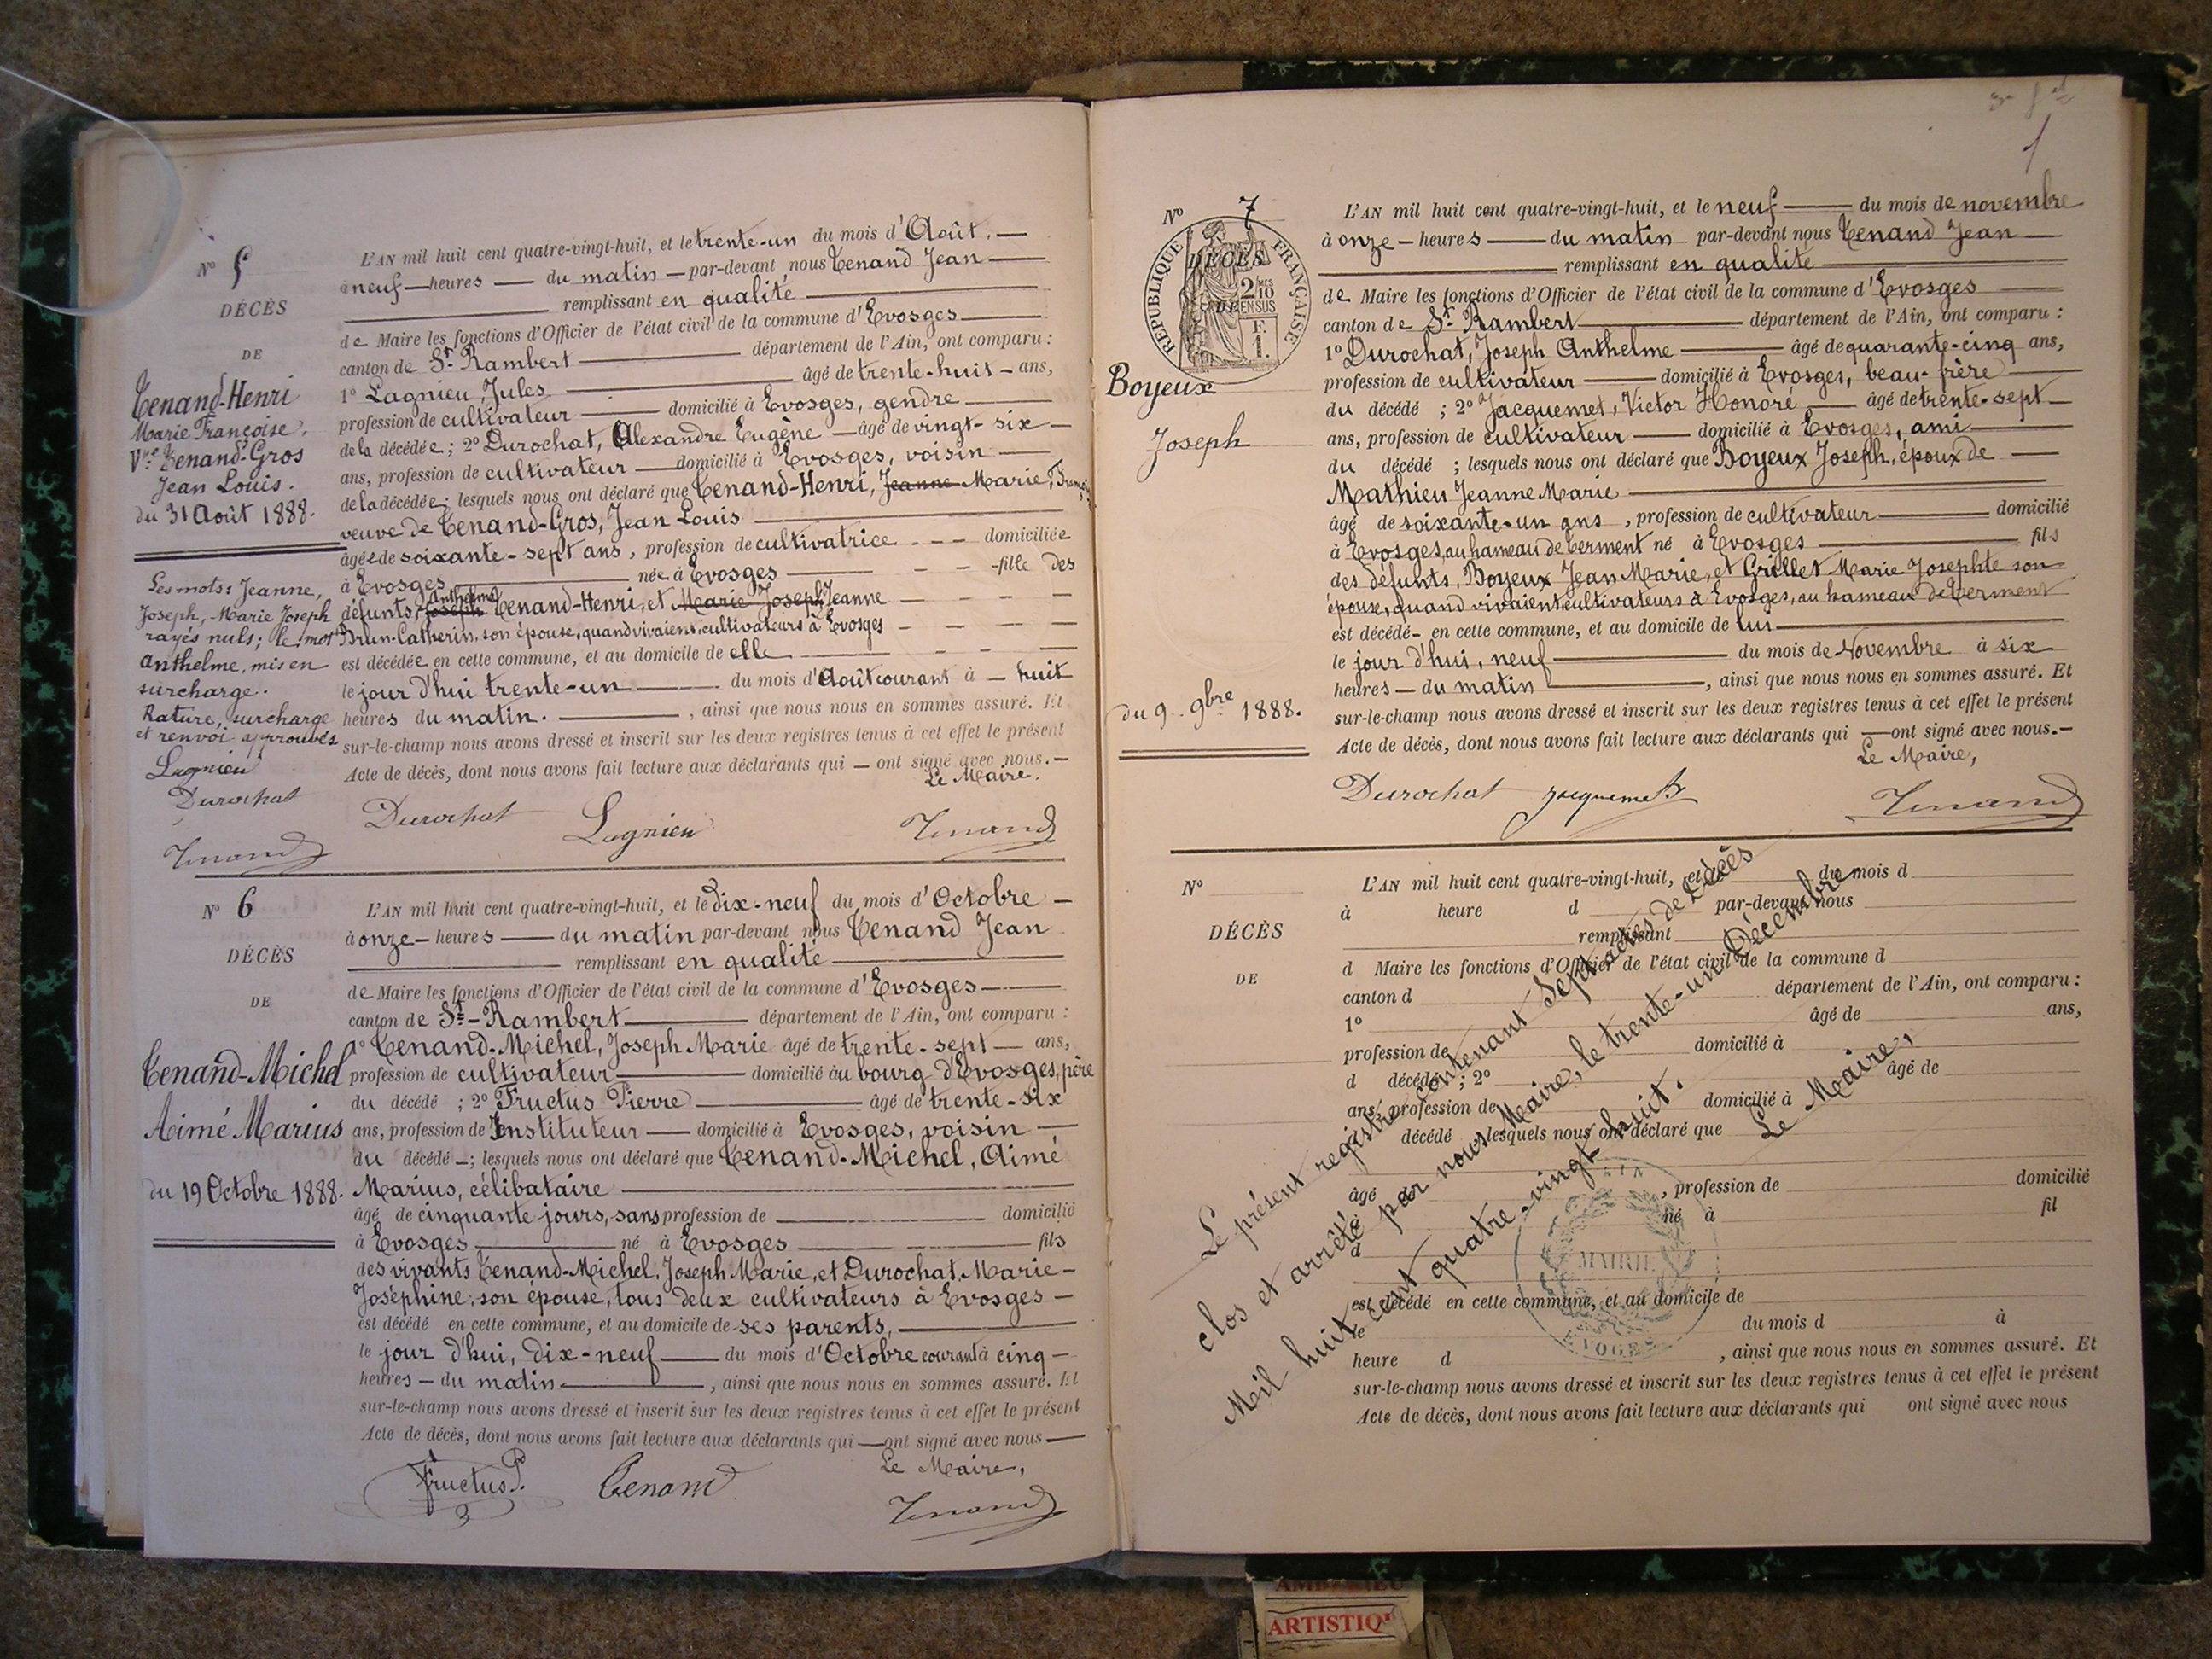 N° 5
DÉCÈS
DE
Tenand-Henri
Marie Françoise.
Vve Tenand-Gros
Jean Louis.
du 31 Août 1888.
Les mots: Jeanne,
Joseph, Marie Joseph
rayés nuls; le mot
Anthelme, mis en
surcharge.
Rature, surcharge
et renvoi approuvés
Lagnieu
Durochat
Tenand
L'AN mil huit cent quatre-vingt-huit, et le trente-un du mois d'Août.
à neuf heures du matin par-devant nous Tenand Jean
remplissant en qualité
de Maire les fonctions d'Officier de l'état civil de la commune d'Evosges
canton de St Rambert département de l'Ain, ont comparu :
1° Lagnieu, Jules âgé de trente-huit ans,
profession de cultivateur domicilié à Evosges, gendre
de la décédée; 2° Durochat, Alexandre Eugène âgé de vingt-six
ans, profession de cultivateur domicilié à Evosges, voisin
de la décédée; lesquels nous ont déclaré que Tenand-Henri, Jeanne Marie, Françoise
veuve de Tenand-Gros, Jean Louis
âgée de soixante-sept ans, profession de cultivatrice domiciliée
à Evosges née à Evosges fille des
Anthelme
défunts, Joseph Tenand-Henri, et Marie Joseph Jeanne
Brun-Catherin, son épouse, quand vivaient, cultivateurs à Evosges
est décédée en cette commune, et au domicile de elle
le jour d'hui trente-un du mois d'Août courant à huit
heures du matin. , ainsi que nous nous en sommes assuré. Et
sur-le-champ nous avons dressé et inscrit sur les deux registres tenus à cet effet le présent
Acte de décès, dont nous avons fait lecture aux déclarants qui ont signé avec nous.
Le Maire.
Durochat Lagnieu Tenand
N° 6
DÉCÈS
DE
Tenand-Michel
Aimé Marius
du 19 Octobre 1888.
L'AN mil huit cent quatre-vingt-huit, et le dix-neuf du mois d'Octobre
à onze heures du matin par-devant nous Tenand Jean
remplissant en qualité
de Maire les fonctions d'Officier de l'état civil de la commune d'Evosges
canton de St-Rambert département de l'Ain, ont comparu :
1° Tenand-Michel, Joseph Marie âgé de trente-sept ans,
profession de cultivateur domicilié au bourg d'Evosges, père
du décédé ; 2° Fructus Pierre âgé de trente-six
ans, profession de Instituteur domicilié à Evosges, voisin
du décédé ; lesquels nous ont déclaré que Tenand-Michel, Aimé
Marius, célibataire
âgé de cinquante jours, sans profession de domicilié
à Evosges né à Evosges fils
des vivants Tenand-Michel, Joseph Marie, et Durochat, Marie-
Joséphine, son épouse, tous deux cultivateurs à Evosges
est décédé en cette commune, et au domicile de ses parents,
le jour d'hui, dix-neuf du mois d'Octobre courant à cinq
heures du matin , ainsi que nous nous en sommes assuré. Et
sur-le-champ nous avons dressé et inscrit sur les deux registres tenus à cet effet le présent
Acte de décès, dont nous avons fait lecture aux déclarants qui ont signé avec nous
Le Maire,
Fructus P. Tenand Tenand
N° 7
RÉPUBLIQUE FRANÇAISE
DÉCÈS
DE
2 MES
10
EN SUS
F.
1.
Boyeux
Joseph
du 9 9bre 1888.
L'AN mil huit cent quatre-vingt-huit, et le neuf du mois de novembre
à onze heures du matin par-devant nous Tenand Jean
remplissant en qualité
de Maire les fonctions d'Officier de l'état civil de la commune d'Evosges
canton de St Rambert département de l'Ain, ont comparu :
1° Durochat, Joseph Anthelme âgé de quarante-cinq ans,
profession de cultivateur domicilié à Evosges, beau-frère
du décédé ; 2° Jacquemet, Victor Honoré âgé de trente-sept
ans, profession de cultivateur domicilié à Evosges, ami
du décédé ; lesquels nous ont déclaré que Boyeux Joseph, époux de
Mathieu Jeanne Marie
âgé de soixante-un ans , profession de cultivateur domicilié
à Evosges, au hameau de Cerment né à Evosges fils
des défunts, Boyeux Jean Marie, et Grillet Marie Josephte son
épouse, quand vivaient cultivateurs à Evosges, au hameau de Cerment
est décédé en cette commune, et au domicile de lui
le jour d'hui, neuf du mois de Novembre à six
heures du matin , ainsi que nous nous en sommes assuré. Et
sur-le-champ nous avons dressé et inscrit sur les deux registres tenus à cet effet le présent
Acte de décès, dont nous avons fait lecture aux déclarants qui ont signé avec nous.
Le Maire,
Durochat Jacquemet Tenand
N°
DÉCÈS
DE
L'AN mil huit cent quatre-vingt-huit, et le du mois d
à heure d par-devant nous
remplissant
d Maire les fonctions d'Officier de l'état civil de la commune d
canton d département de l'Ain, ont comparu :
1° âgé de ans,
profession de domicilié à
d décédé ; 2° âgé de
ans, profession de domicilié à
décédé lesquels nous ont déclaré que
âgé de , profession de domicilié
né à fil
d
est décédé en cette commune, et au domicile de
le du mois d à
heure d , ainsi que nous nous en sommes assuré. Et
sur-le-champ nous avons dressé et inscrit sur les deux registres tenus à cet effet le présent
Acte de décès, dont nous avons fait lecture aux déclarants qui ont signé avec nous
Le présent registre contenant Sept actes de Décès
clos et arrêté par nous Maire, le trente-un Décembre
Mil huit cent quatre-vingt huit.
Le Maire,
MAIRIE
ARTISTIQ